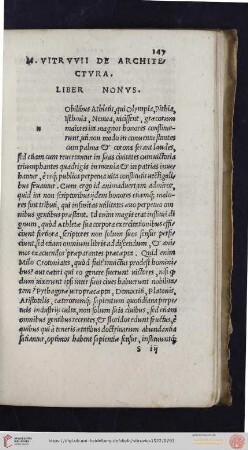 147
M. VITRVVII DE ARCHITE
CTVRA.
LIBER NONVS.
Obilibus Athletis, qui Olympia, Pithia,
Isthmia, Nemea, vicissent, græcorum
maiores ita magnos honores constitue
runt, uti non modo in conuentu stantes
cum palma & corona ferant laudes,
sed etiam cum reuertantur in suas ciuitates cum uictoria
triumphantes quadrigis in mœnia & in patrias inue
hantur, è req; publica perpetua uita constitutis uectigali
bus fruantur. Cum ergo id animaduertam, admiror,
quid ita non scriptoribus iidem honores etiamq; maio
res sint tributi, qui infinitas utilitates æuo perpetuo om
nibus gentibus præstent. Id enim magis erat institui di
gnum, quod Athletæ sua corpora exercitationibus effi
ciunt fortiora, scriptores non solum suos sensus perfici
unt, sed etiam omnium libris ad discendum, & ani
mos exacuendos præparantes præcepta. Quid enim
Milo Crotoniates, quòd fuit inuictus prodest homini
bus? aut cæteri qui eo genere fuerunt uictores, nisi q̃
dum uixerunt ipsi inter suos ciues habuerunt nobilita
tem? Pythagoræ uero præcepta, Democriti, Platonis,
Aristotelis, cæterorumq; sapientum quotidiana perpe
tuis industriis culta, non solum suis ciuibus, sed etiam
omnibus gentibus recentes & floridos edunt fructus, è
quibus qui à teneris ætatibus doctrinarum abundantia
satiantur, optimos habent sapientiæ sensus, instituuntq;
S iij